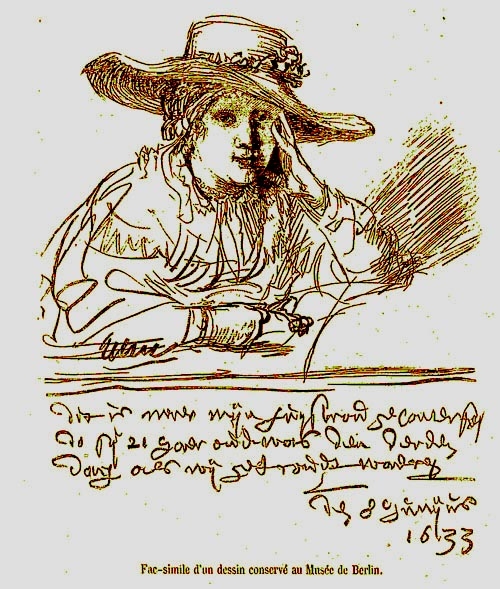 dit is naer mijn huijsvrou geconterfeijt
do sij 21 jaer oud was den derden
dach als wij getroudt waeren
den 8 junijus
1633
Fac-simile d'un dessin conservé au Musée de Berlin.